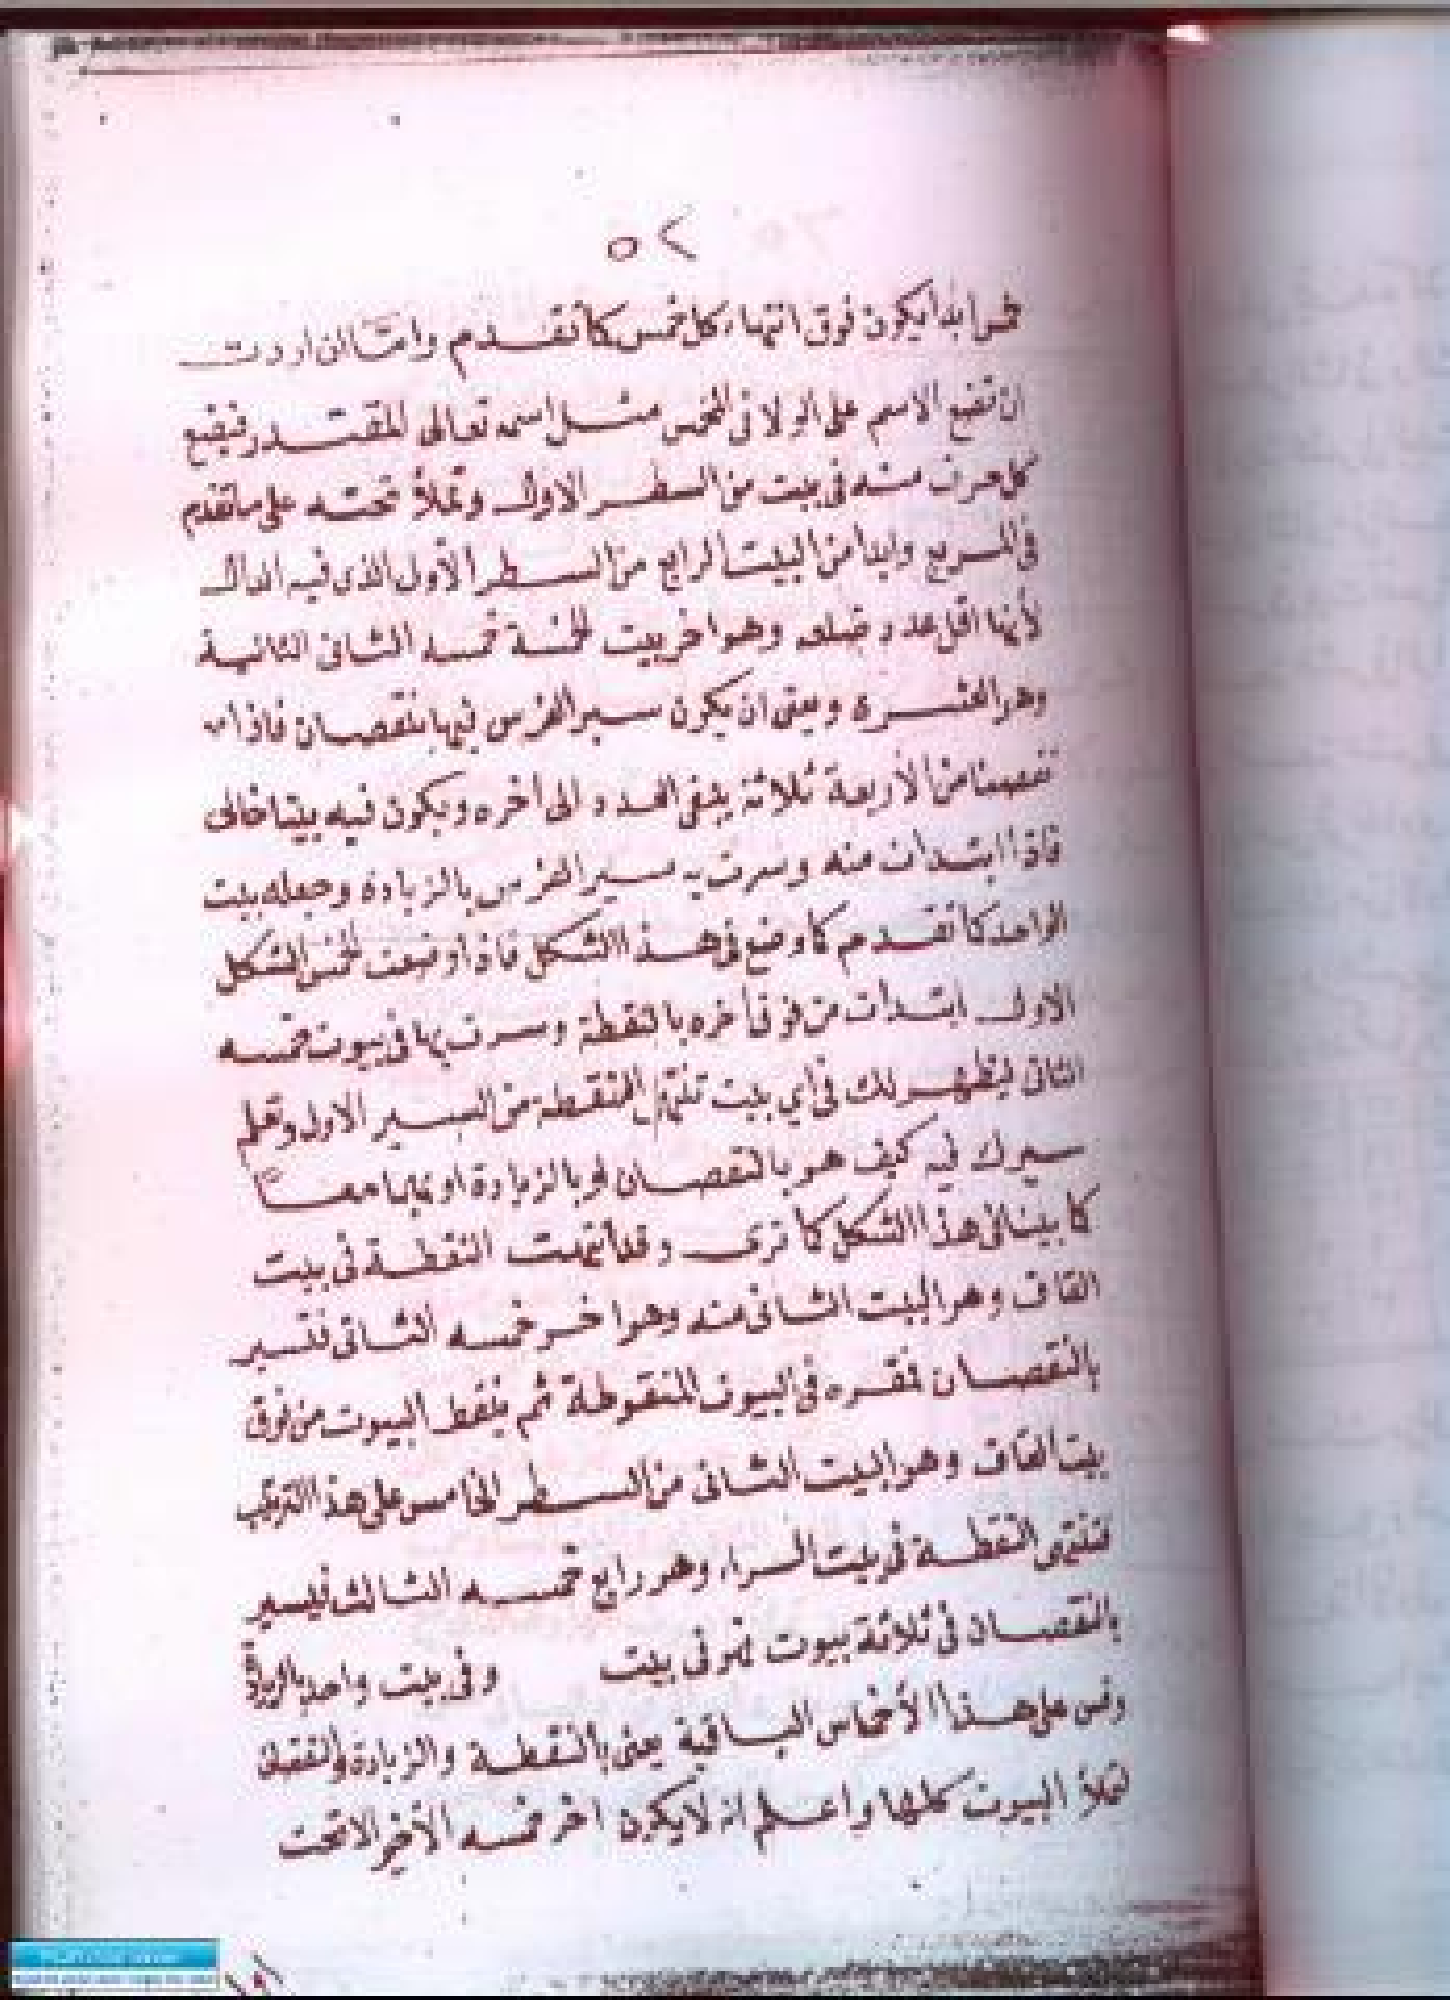 ٥٢
خمس ابدا يكون فوق انتهاء كل خمس كما تقدم واما ان اردت
ان تضع الاسم على الولا فى المخمس مثل اسمه تعالى المقتدر فتضع
كل حرف منه فى بيت من السطر الاول وتملأ تحته على ما تقدم
فى المربع وابدأ من البيت الرابع من السطر الأول الذى فيه الدال
لأنها اقل عدد ضلعه وهو اخر بيت خمسة خمسه الثانى الثانية
وهو العشرة وبقى ان يكون سير الفرس فيها بنقصان فاذا
نقصنا من الأربعة ثلاثة ينتفى العدد الى أخره ويكون فيه بيتا خالى
فاذا ابتدات منه وسرت به مسير الفرس بالزيادة وجعله بيت
الواحد كما تقدم كما وضع فى هذا الشكل فاذا وضعت المخمس الشكل
الاول ابتدات من فوق أخره بالنقطة وسرت بها فى بيوت خمسه
الثانى فيظهر لك فى أي بيت تنتهى النقطة من السير الاول وتعلم
سيرك فيه كيف هو بالنقصان او بالزيادة او بهما معا
كما بينا فى هذا الشكل كما ترى وقد انتهت النقطة فى بيت
القاف وهو البيت الثانى منه وهو اخر خمسه الثانى فتسير
بالنقصان فى البيوت المنقوطة ثم ينقط البيوت من فوق
بيت القاف وهو البيت الثانى من السطر الخامس على هذا الترتيب
فتنتهى النقطة فى بيت الراء وهو رابع خمسه الثالث فيسير
بالنقصان فى ثلاثة بيوت ثم فى بيت وفى بيت واحد بالزيادة
وقس على هذا الأخماس الباقية يعنى بالنقطة والزيادة والنقصان
لتملأ البيوت كلها واعلم انه لا يكون اخر خمسه الأخير الا تحت